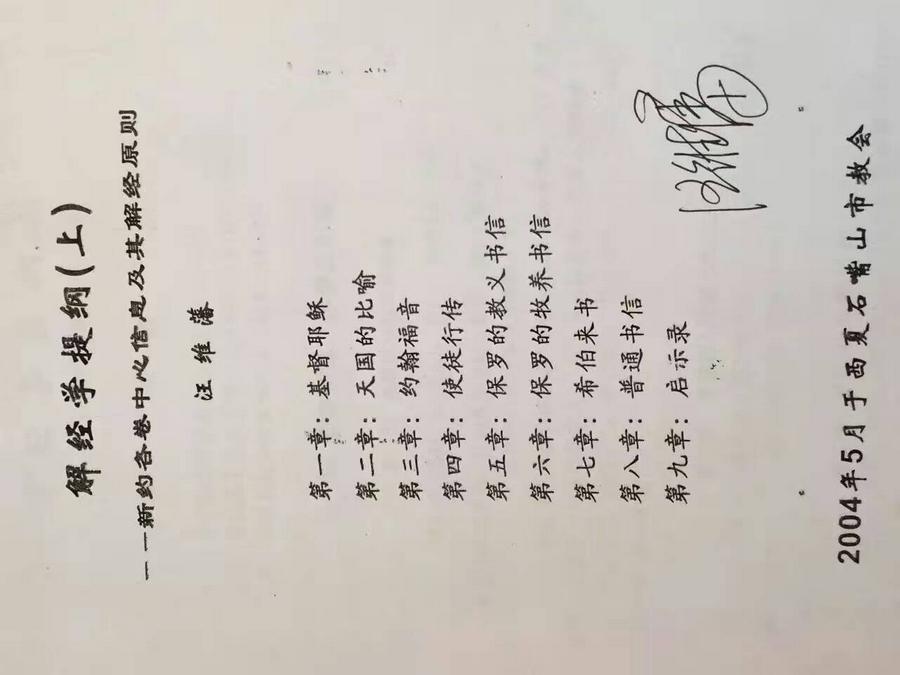 解经学提纲(上)
——新约各卷中心信息及其解经原则
汪维藩
第一章：基督耶稣
第二章：天国的比喻
第三章：约翰福音
第四章：使徒行传
第五章：保罗的教义书信
第六章：保罗的牧养书信
第七章：希伯来书
第八章：普通书信
第九章：启示录
汪维藩
2004年5月于西夏石嘴山市教会